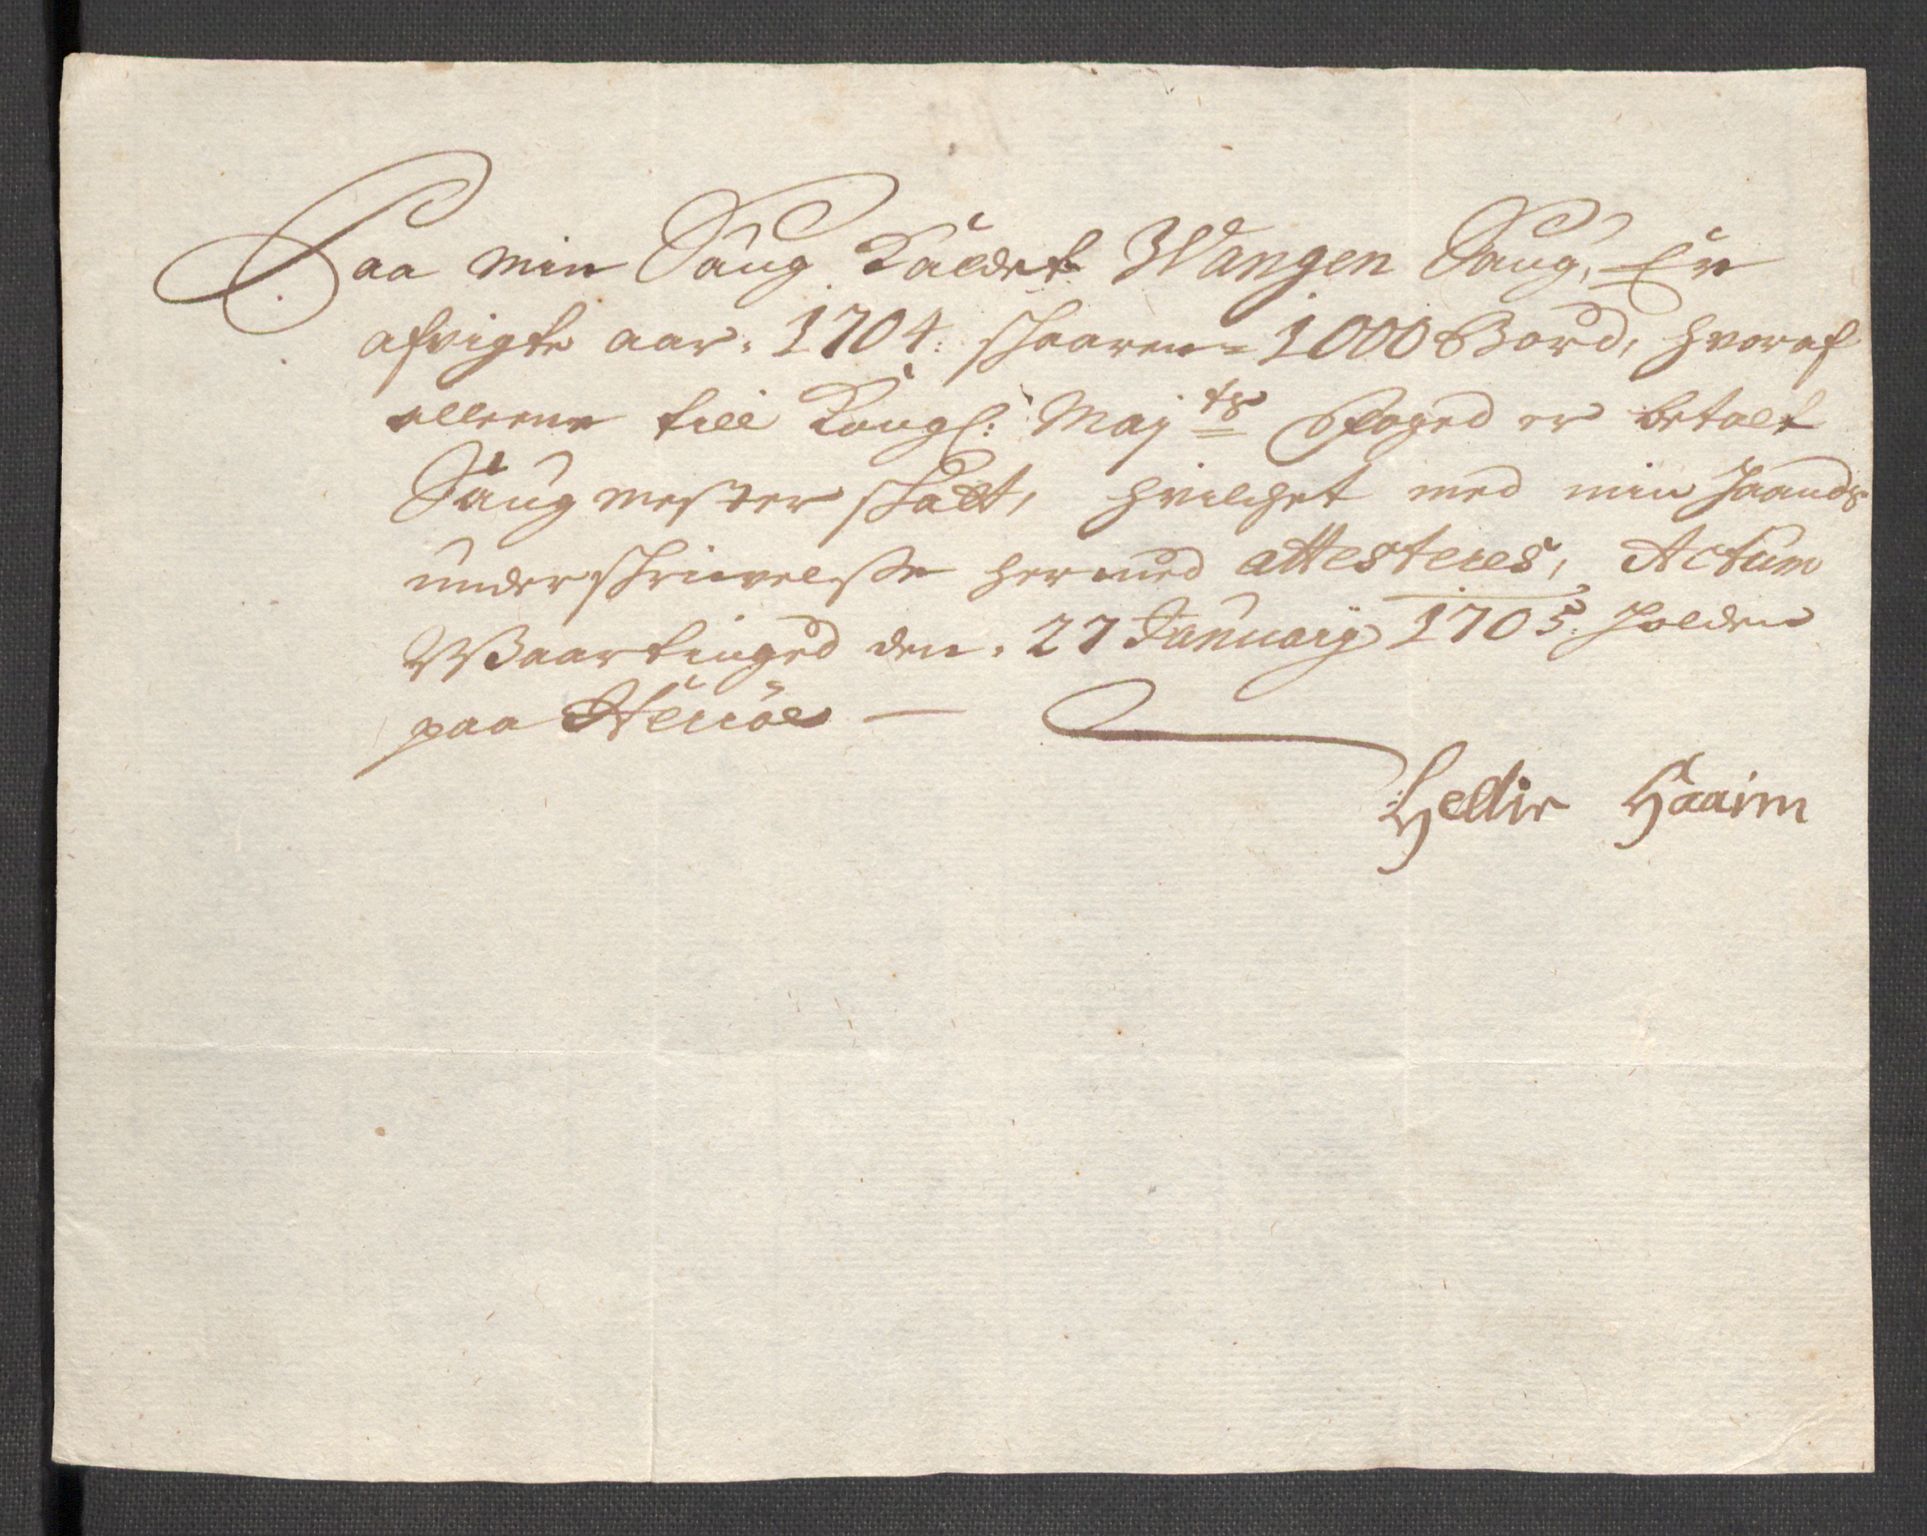 Paa min Saug Kaldet Wangen Saug, Er
afvigte aar. 1704: schaaren 1000 Bord, hvoraf
alleene till Kongl: Maj<sup>ts</sup> Foged er betalt
Saugmester schatt, hvilchet med min haands
underschrievelsse hermed attesteres, Actum
Waartinged den. 27 January 1705. holden
paa Herröe
Hellir Haaim